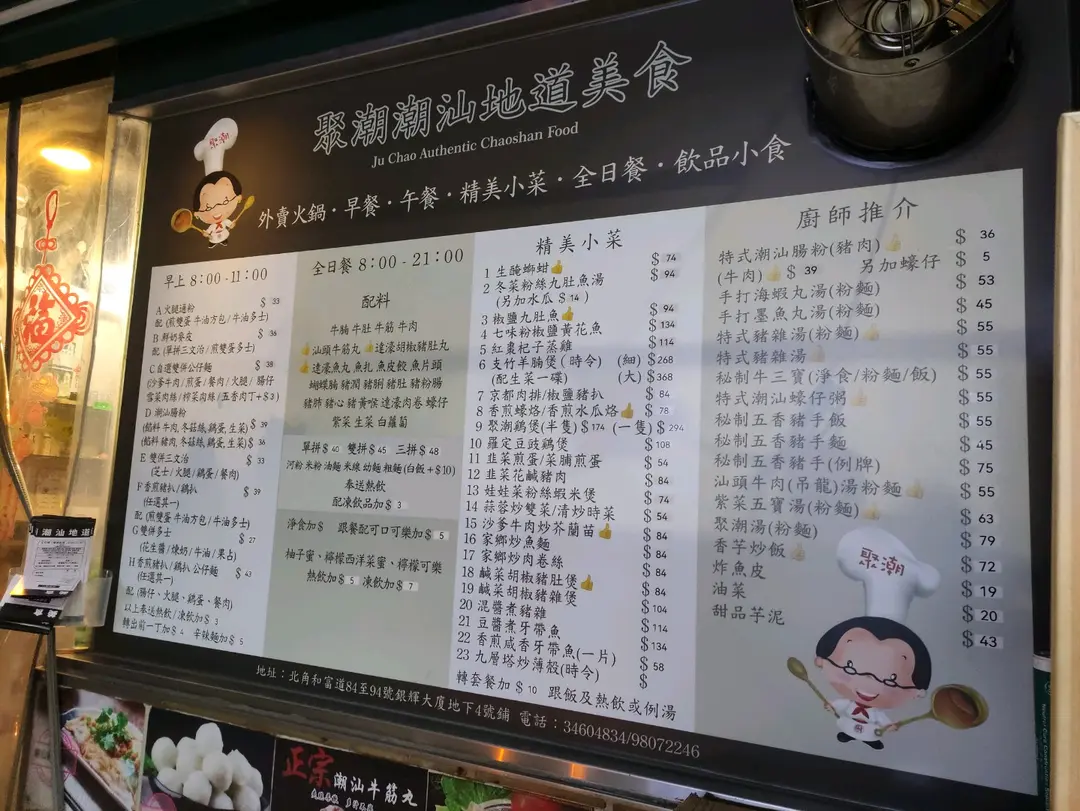 聚潮潮汕地道美食
Ju Chao Authentic Chaoshan Food
外賣火鍋·早餐·午餐·精美小菜·全日餐·飲品小食
聚潮
早上 8:00-11:00
A 火腿通粉 $ 33
配 (煎雙蛋 牛油方包/牛油多士)
B 鮮奶麥皮 $ 36
配 (單拼三文治/煎雙蛋多士)
C 自選雙併公仔麵 $ 38
(沙爹牛肉/煎蛋/餐肉/火腿/腸仔
雪菜肉絲/榨菜肉絲/五香肉丁+$3)
D 潮汕腸粉
(餡料 牛肉,冬菇絲,鷄蛋,生菜) $ 39
(餡料 豬肉,冬菇絲,鷄蛋,生菜) $ 36
E 雙併三文治 $ 33
(芝士/火腿/鷄蛋/餐肉)
F 香煎豬扒/鷄扒 $ 39
(任選其一)
配 (煎雙蛋 牛油方包/牛油多士)
G 雙併多士 $ 27
(花生醬/煉奶/牛油/果占)
H 香煎豬扒/鷄扒 公仔麵 $ 43
(任選其一)
配 (腸仔、火腿、鷄蛋、餐肉)
以上奉送熱飲/凍飲加 $ 3
轉出前一丁加 $ 4 辛辣麵加 $ 5
全日餐 8:00 - 21:00
配料
牛腩 牛肚 牛筋 牛肉
汕頭牛筋丸 達濠胡椒豬肚丸
達濠魚丸 魚扎 魚皮餃 魚片頭
蝴蝶腩 豬潤 豬脷 豬肚 豬粉腸
豬肺 豬心 豬黃喉 達濠肉卷 蠔仔
紫菜 生菜 白蘿蔔
單拼 $ 40 雙拼 $ 45 三拼 $ 48
河粉 米粉 油麵 米線 幼麵 粗麵 (白飯+$10)
奉送熱飲
配凍飲品加 $ 3
淨食加 $ 跟餐配可口可樂加 $ 5
柚子蜜、檸檬西洋菜蜜、檸檬可樂
熱飲加 $ 5 凍飲加 $ 7
精美小菜
1 生醃螄蚶 $ 74
2 冬菜粉絲九肚魚湯 $ 94
(另加水瓜 $ 14 )
3 椒鹽九肚魚 $ 94
4 七味粉椒鹽黃花魚 $ 134
5 紅棗杞子蒸雞 $ 114
6 支竹羊腩煲 (時令) (細) $268
(配生菜一碟) (大) $368
7 京都肉排/椒鹽豬扒 $ 84
8 香煎蠔烙/香煎水瓜烙 $ 78
9 聚潮鷄煲(半隻) $ 174 (一隻) $ 294
10 羅定豆豉鷄煲 $ 108
11 韭菜煎蛋/菜脯煎蛋 $ 54
12 韭菜花鹹豬肉 $ 84
13 娃娃菜粉絲蝦米煲 $ 74
14 蒜蓉炒雙菜/清炒時菜 $ 54
15 沙爹牛肉炒芥蘭苗 $ 84
16 家鄉炒魚麵 $ 84
17 家鄉炒肉卷絲 $ 84
18 鹹菜胡椒豬肚煲 $ 84
19 鹹菜胡椒豬雜煲 $ 104
20 混醬煮豬雜 $ 114
21 豆醬煮牙帶魚 $ 134
22 香煎咸香牙帶魚(一片) $ 58
23 九層塔炒薄殼(時令) $
轉套餐加 $ 10 跟飯及熱飲或例湯
廚師推介
特式潮汕腸粉(豬肉) $ 36
(牛肉) $ 39 另加蠔仔 $ 5
手打海蝦丸湯(粉麵) $ 53
手打墨魚丸湯(粉麵) $ 45
特式豬雜湯(粉麵) $ 55
特式豬雜湯 $ 55
秘制牛三寶(淨食/粉麵/飯) $ 55
特式潮汕蠔仔粥 $ 55
秘制五香豬手飯 $ 55
秘制五香豬手麵 $ 45
秘制五香豬手(例牌) $ 75
汕頭牛肉(吊龍)湯粉麵 $ 55
紫菜五寶湯(粉麵) $ 63
聚潮湯(粉麵) $ 79
香芋炒飯 $ 72
炸魚皮 $ 19
油菜 $ 20
甜品芋泥 $ 43
聚潮
地址：北角和富道84至94號銀輝大廈地下4號鋪 電話：34604834/98072246
福
潮汕地道
正宗 潮汕牛筋丸